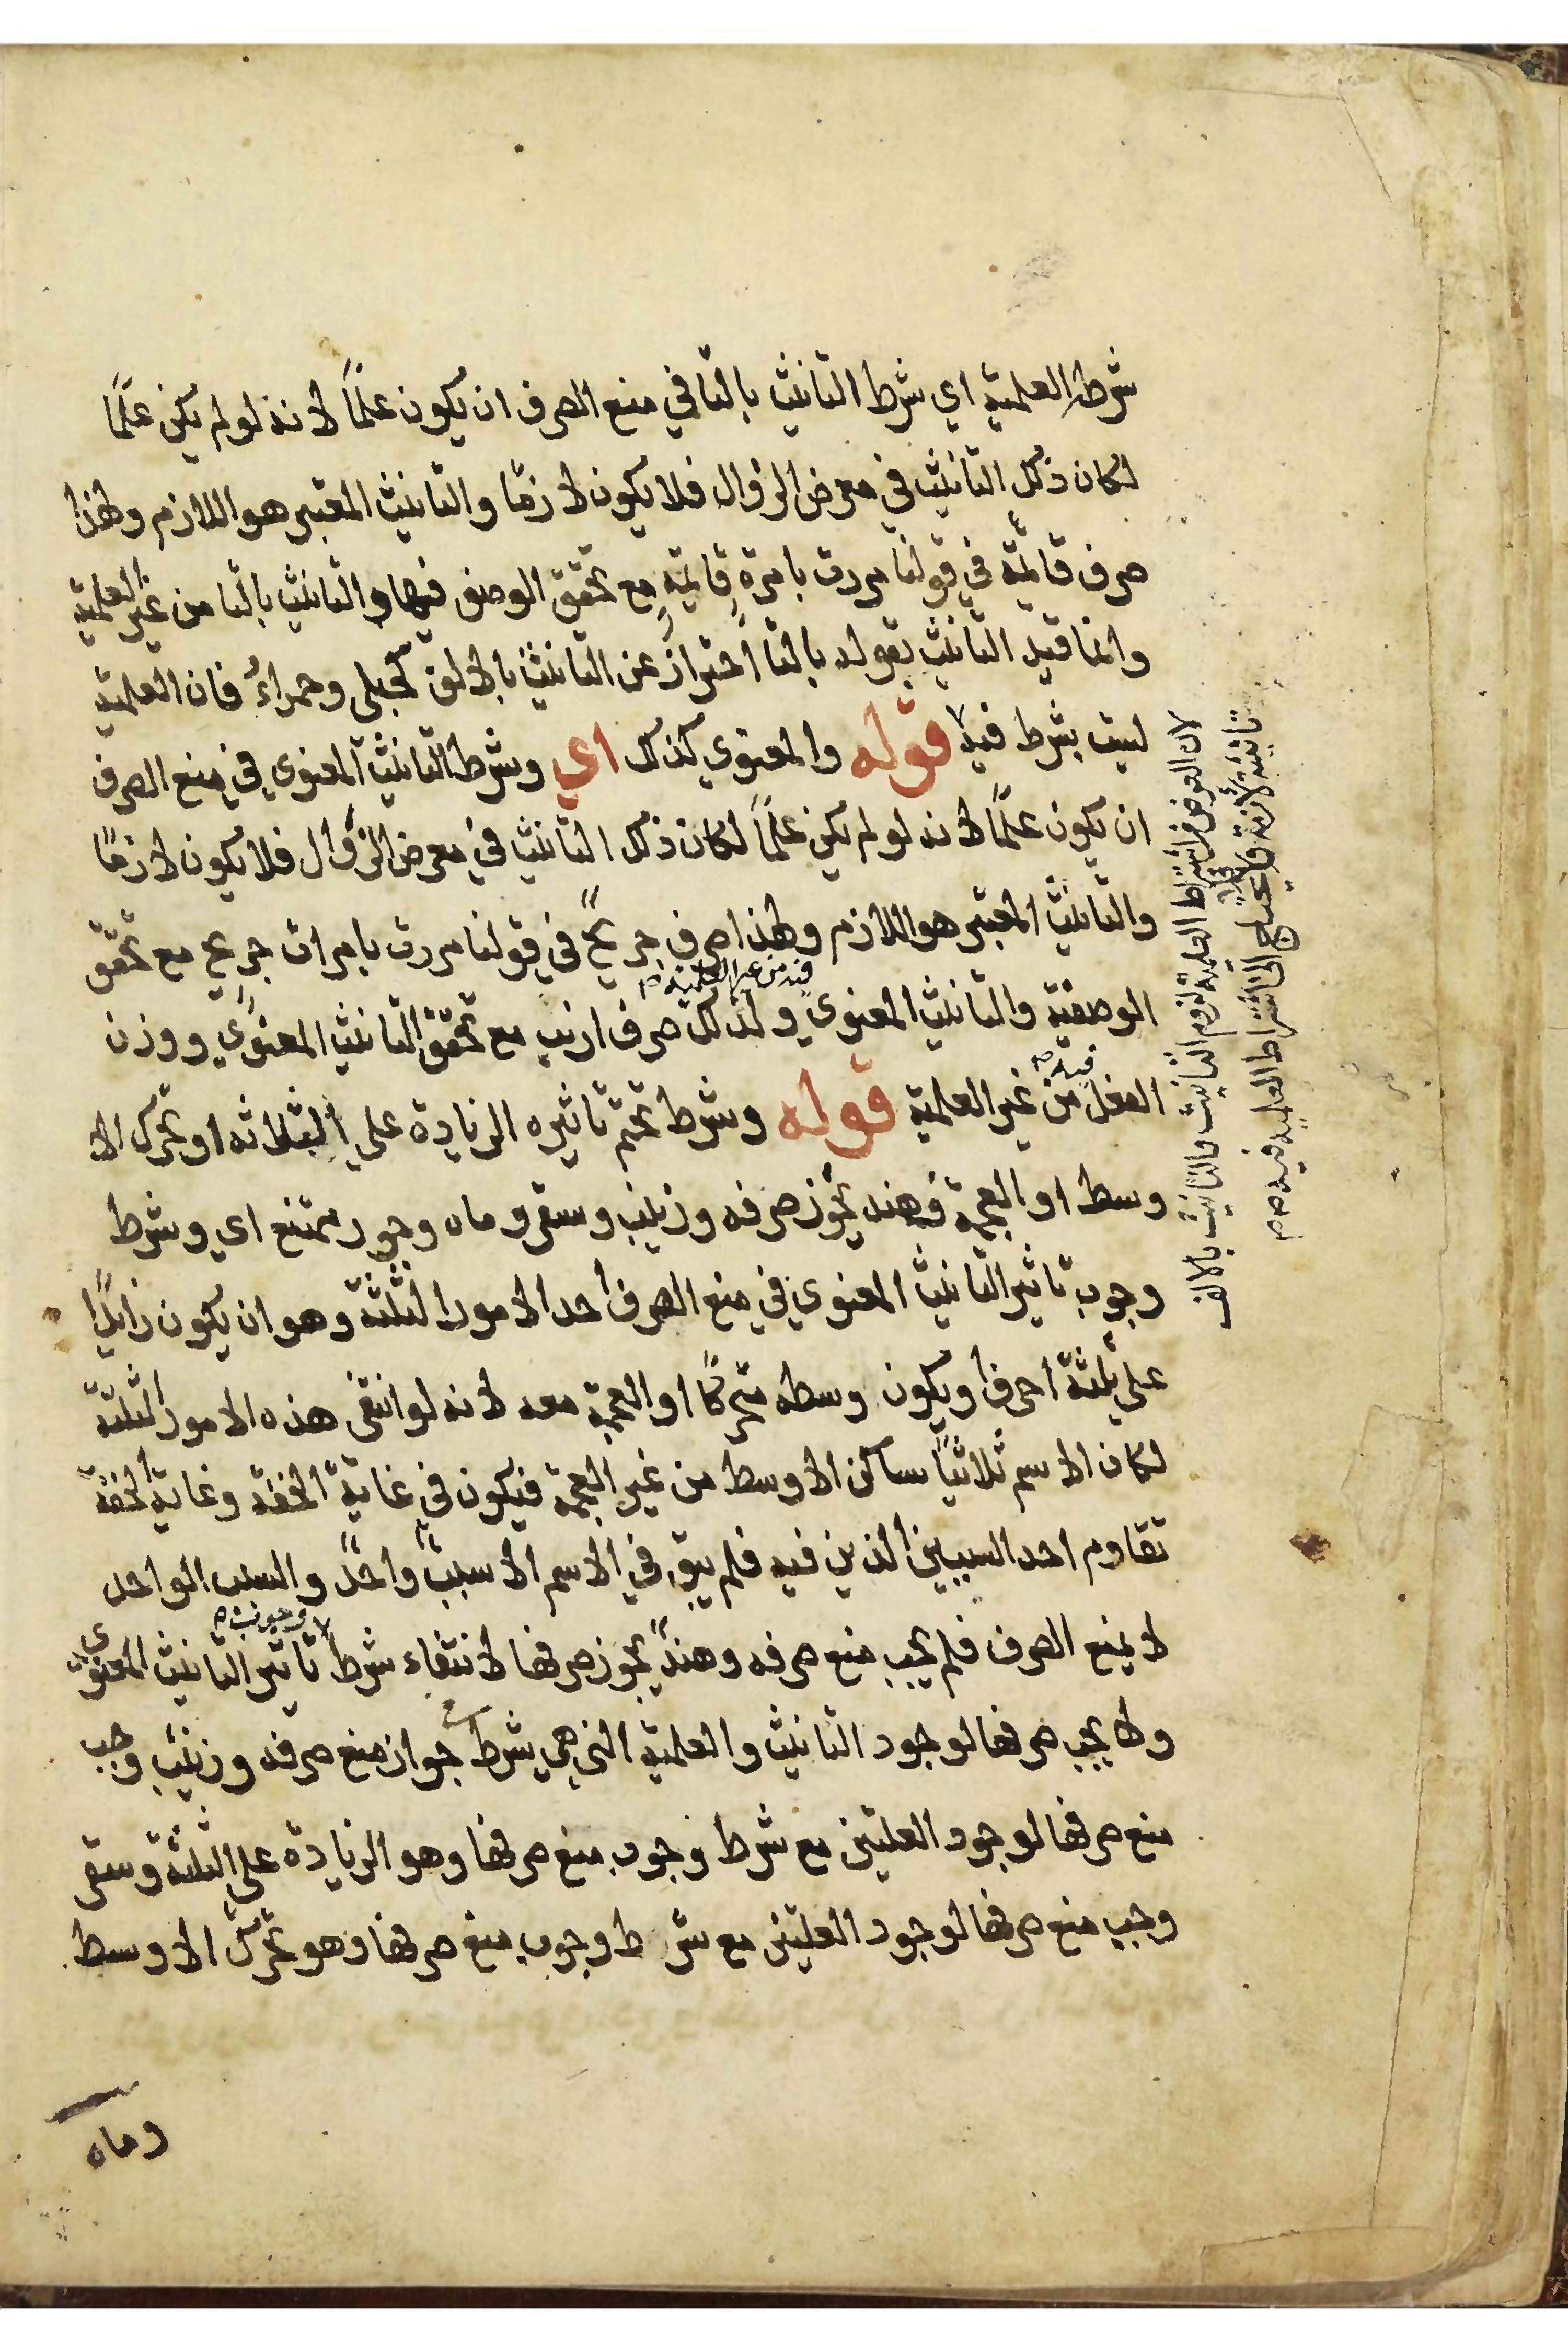 شرطه العلمية اي شرط التانيث بالتا في منع الصرف ان يكون علمًا لانه لو لم يكن علمًا
لكان ذلك التانيث في معرض الزوال فلا يكون لازمًا والتانيث المعتبر هو اللازم ولهذا
صرف قائمة في قولنا مررت بامرةٍ قايمةٍ مع تحقق الوصف فيها والتانيث بالتا من غير العلمية
وانما قيد التانيث بقوله بالتا احترازً عن التانيث بالالف كحبلى وحمراءُ فان العلمية
ليست بشرط فيه قوله والمعنوي كذلك اي وشرط التانيث المعنوي في منع الصرف
ان يكون علمًا لانه لو لم يكن علمًا لكان ذلك التانيث في معرض الزوال فلا يكون لازمًا
والتانيث المعتبر هو اللازم ولهذا صرف جريحٌ في قولنا مررت بامرات جريح مع تحقق
الوصفية والتانيث المعنوي فيه من غير العلمية صح ولذلك صرف ارنب مع تحقق التانيث المعنوي ووزن
الفعل فيه صح من غير العلمية قوله وشرط تحتم تاثيره الزيادة علي الثلاثه او تحرك الا
وسط او العجمة فهند يجوز صرفه وزينب وسقر وماه وجور ممتنع اي وشرط
وجوب تاثير التانيث المعنوي في منع الصرف احد الامور الثلثة وهو ان يكون زايدًا
على ثلثة احرف او يكون وسطه متحركًا او العجمة معه لانه لو انتفى هذه الامور الثلثة
لكان الاسم ثلاثيًا ساكن الاوسط من غير العجمة فيكون في غاية الخفة وغاية الخفة
تقاوم احد السببين الذين فيه فلم يبق في الاسم الا سببٌ واحدٌ والسبب الواحد
لا يمنع الصرف فلم يجب منع صرفه وهندٌ يجوز صرفها لانتفاء شرط وجوب صح تاثير التانيث المعنوي
ولا يجب صرفها لوجود التانيث والعلمية التي هي شرط جواز منع صرفه وزينب وجب
منع صرفها لوجود العلتين مع شرط وجوب منع صرفها وهو الزيادة على الثلثة وسقر
وجب منع صرفها لوجود العلتين مع شرط وجوب منع صرفها وهو تحرك الاوسط
وماه
لان الغرض من اشتراط العلمية لزوم التانيث والتانيث بالالف
تانيثه لازمة فلا يحتاج الى اشتراط العلمية فيه صح